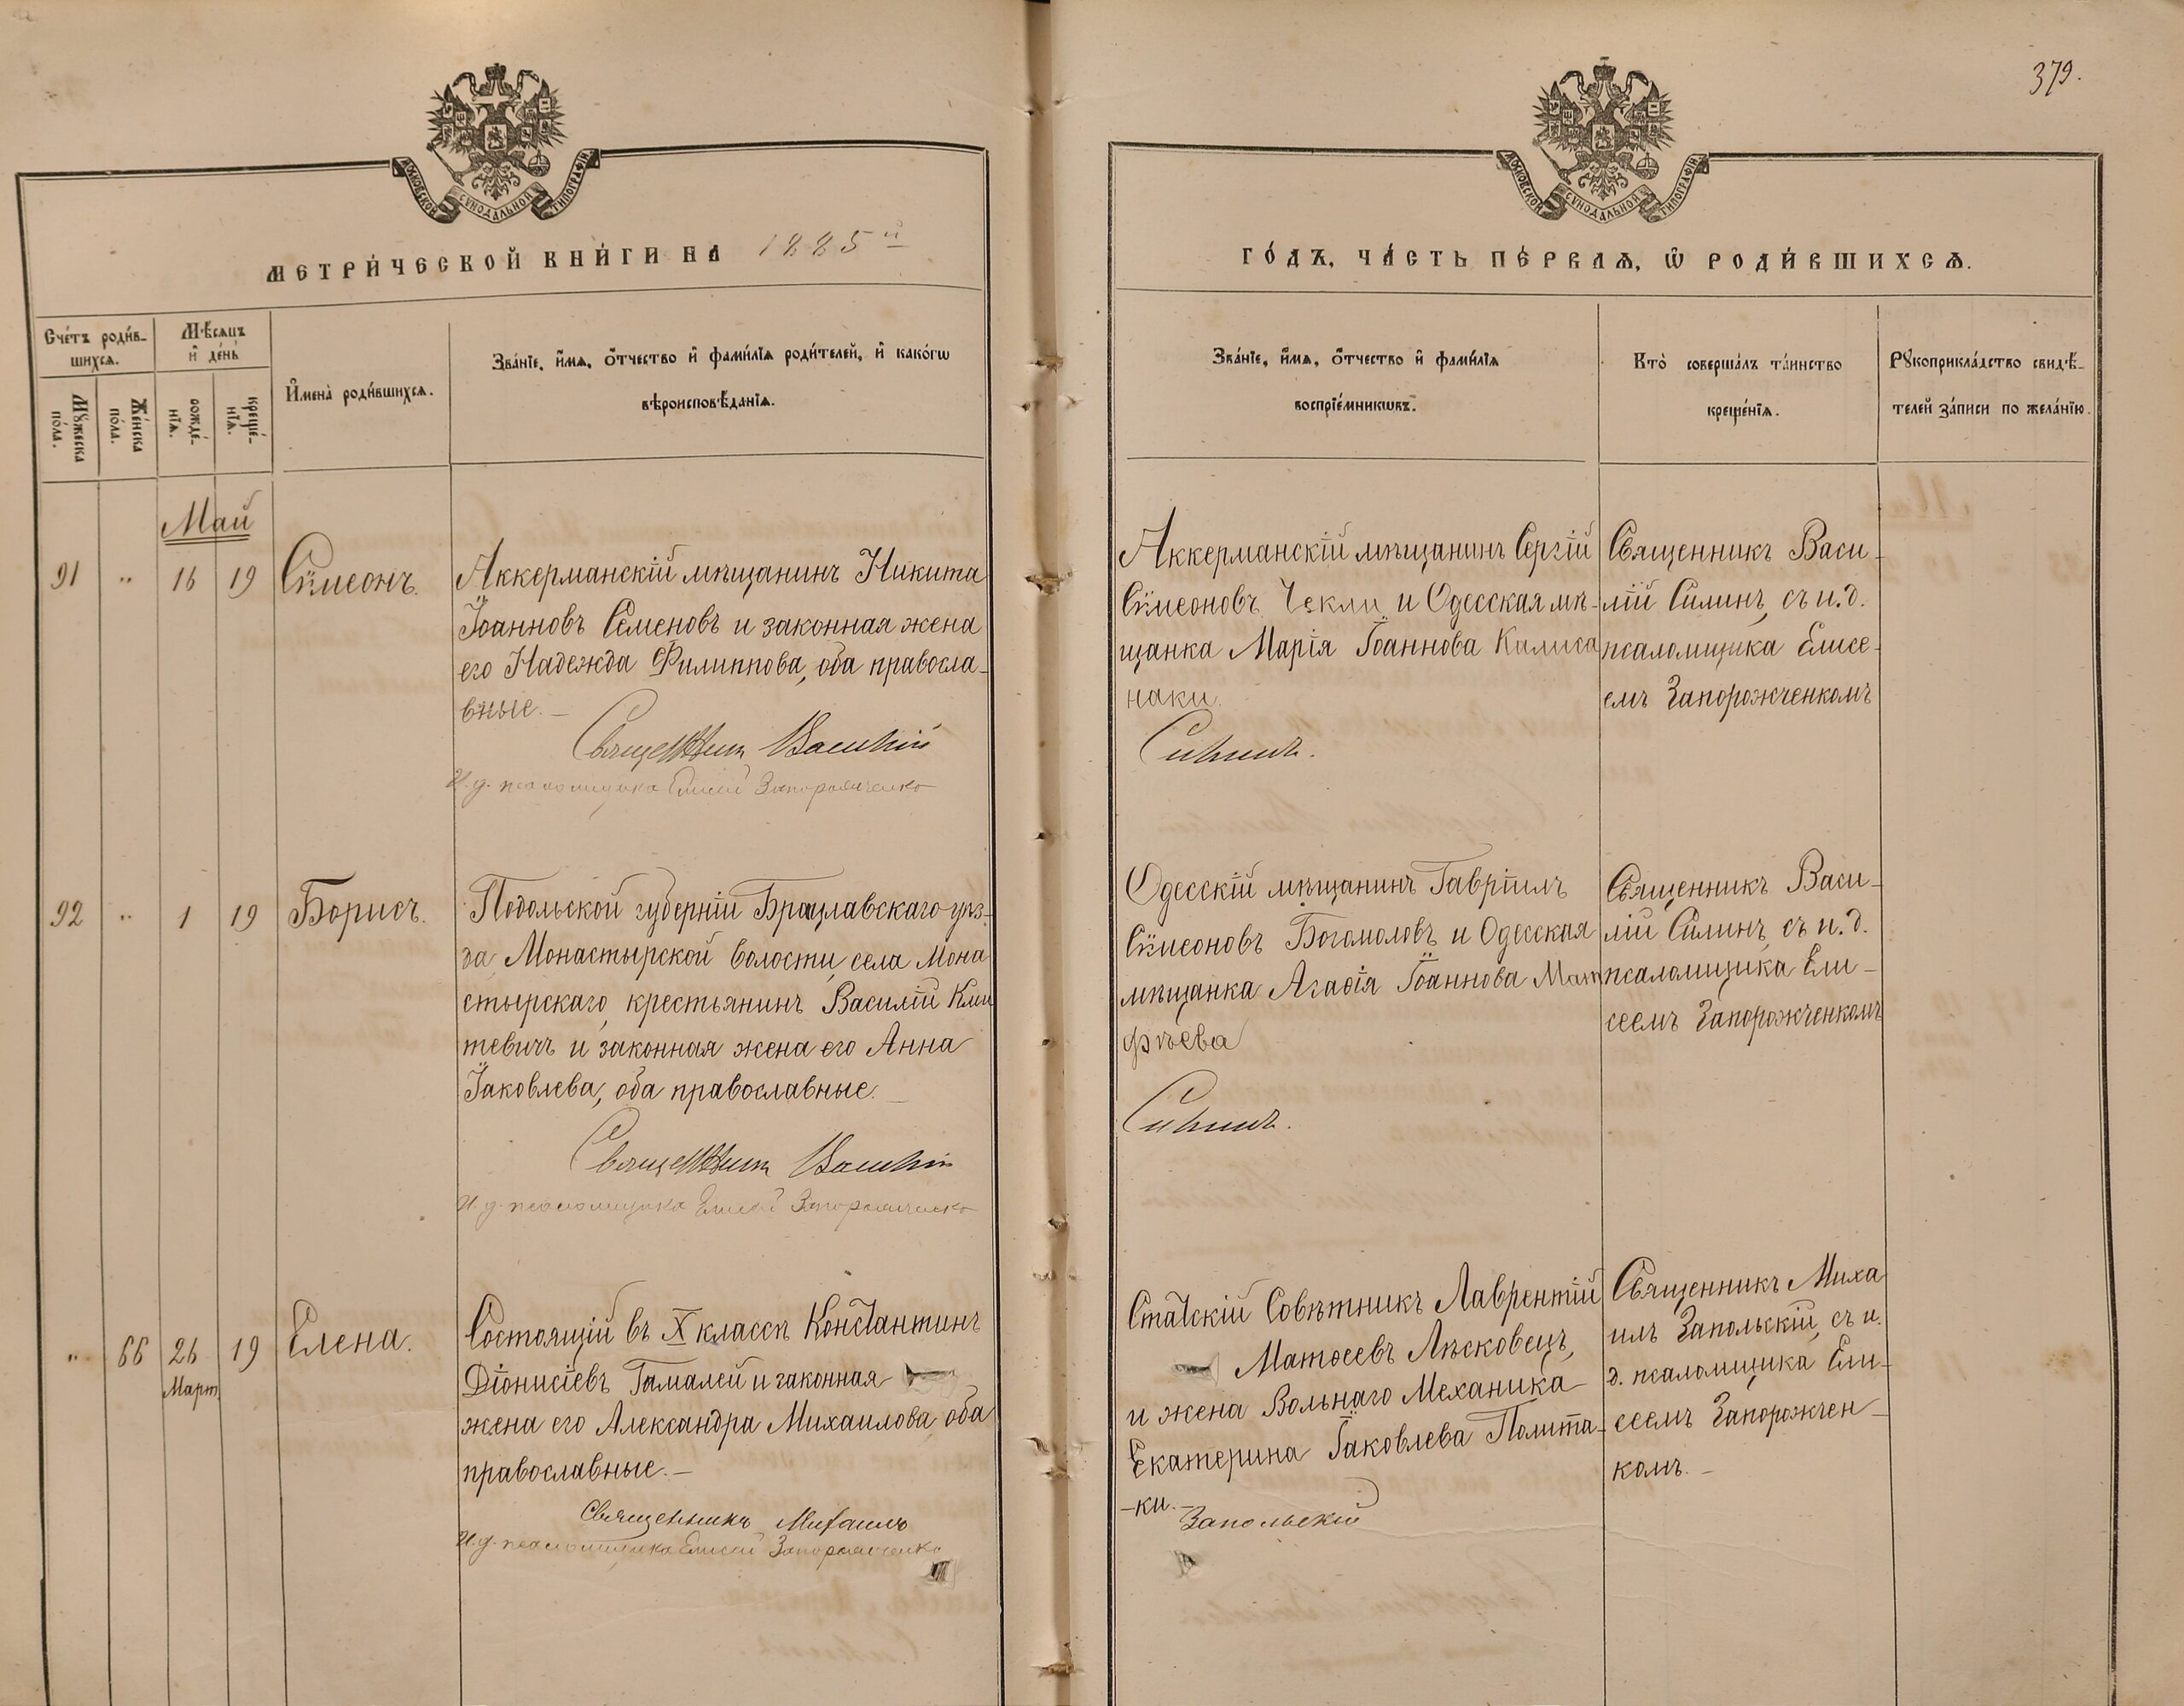 379.
МОСКОВСКОЙ СѴНОДАЛЬНОЙ ТИПОГРАФІИ.
МОСКОВСКОЙ СѴНОДАЛЬНОЙ ТИПОГРАФІИ.
МЕТРИ́ЧЕСКОЙ КНИ́ГИ НА 1885й
ГО́ДЪ, ЧА́СТЬ ПЕ́РВАѦ, Ѿ РОДИ́ВШИХСѦ.
Сче́тъ роди́в-
шихсѧ.
Мꙋ́жеска
по́ла.
Же́нска
по́ла.
Мѣ́сѧцъ
и҆ де́нь
рожде́-
нїѧ.
креще́-
нїѧ.
И҆мена̀ роди́вшихсѧ.
Зва́нїе, и҆́мѧ, о҆́тчество и҆ фамі́лїѧ роди́телей, и҆ како́гѡ
вѣроисповѣ́данїѧ.
Зва́нїе, и҆́мѧ, о҆́тчество и҆ фамі́лїѧ
воспрїе́мникѡвъ.
Кто̀ соверша́лъ та́инство
креще́нїѧ.
Рꙋкоприкла́дство свидѣ́-
телей за́писи по жела́нїю.
Май
91 " 16 19 Сѵмеонъ.
Аккерманскій мѣщанинъ Никита
Іоанновъ Семеновъ и законная жена
его Надежда Филиппова, оба правосла-
вные.—
Священникъ Василій
И. д. псаломщика Елисей Запорожченко
Аккерманскій мѣщанинъ Сергій
Сѵмеоновъ Чекли и Одесская мѣ-
щанка Марія Іоаннова Калиса
наки.
Силинъ.
Священникъ Васи-
лій Силинъ, съ и. д.
псаломщика Елисе-
емъ Запорожченкомъ
92 " 1 19 Борисъ.
Подольской губерніи Брацлавскаго уѣз-
да, Монастырской волости, села Мона
стырскаго, крестьянинъ Василій Кли
тевичъ и законная жена его Анна
Іаковлева, оба православные.—
Священникъ Василій
И. д. псаломщика Елисей Запорожченко
Одесскій мѣщанинъ Гавріилъ
Сѵмеоновъ Богомоловъ и Одесская
мѣщанка Агаѳія Іоаннова Мат
фѣева
Силинъ.
Священникъ Васи-
лій Силинъ, съ и. д.
псаломщика Ели-
сеемъ Запорожченкомъ
" 66 26 19 Елена.
Март.
Состоящій въ X классѣ Константинъ
Діонисіевъ Гамалей и законная
жена его Александра Михаилова, оба
православные.—
Священникъ Михаилъ
И. д. псаломщика Елисей Запорожченко
Статскій Совѣтникъ Лаврентій
Матѳеевъ Лѣсковецъ,
и жена Вольнаго Механика
Екатерина Іаковлева Полита-
-ки.—
Запольскій
Священникъ Миха
илъ Запольскій, съ и.
д. псаломщика Ели-
сеемъ Запорожчен-
комъ.—